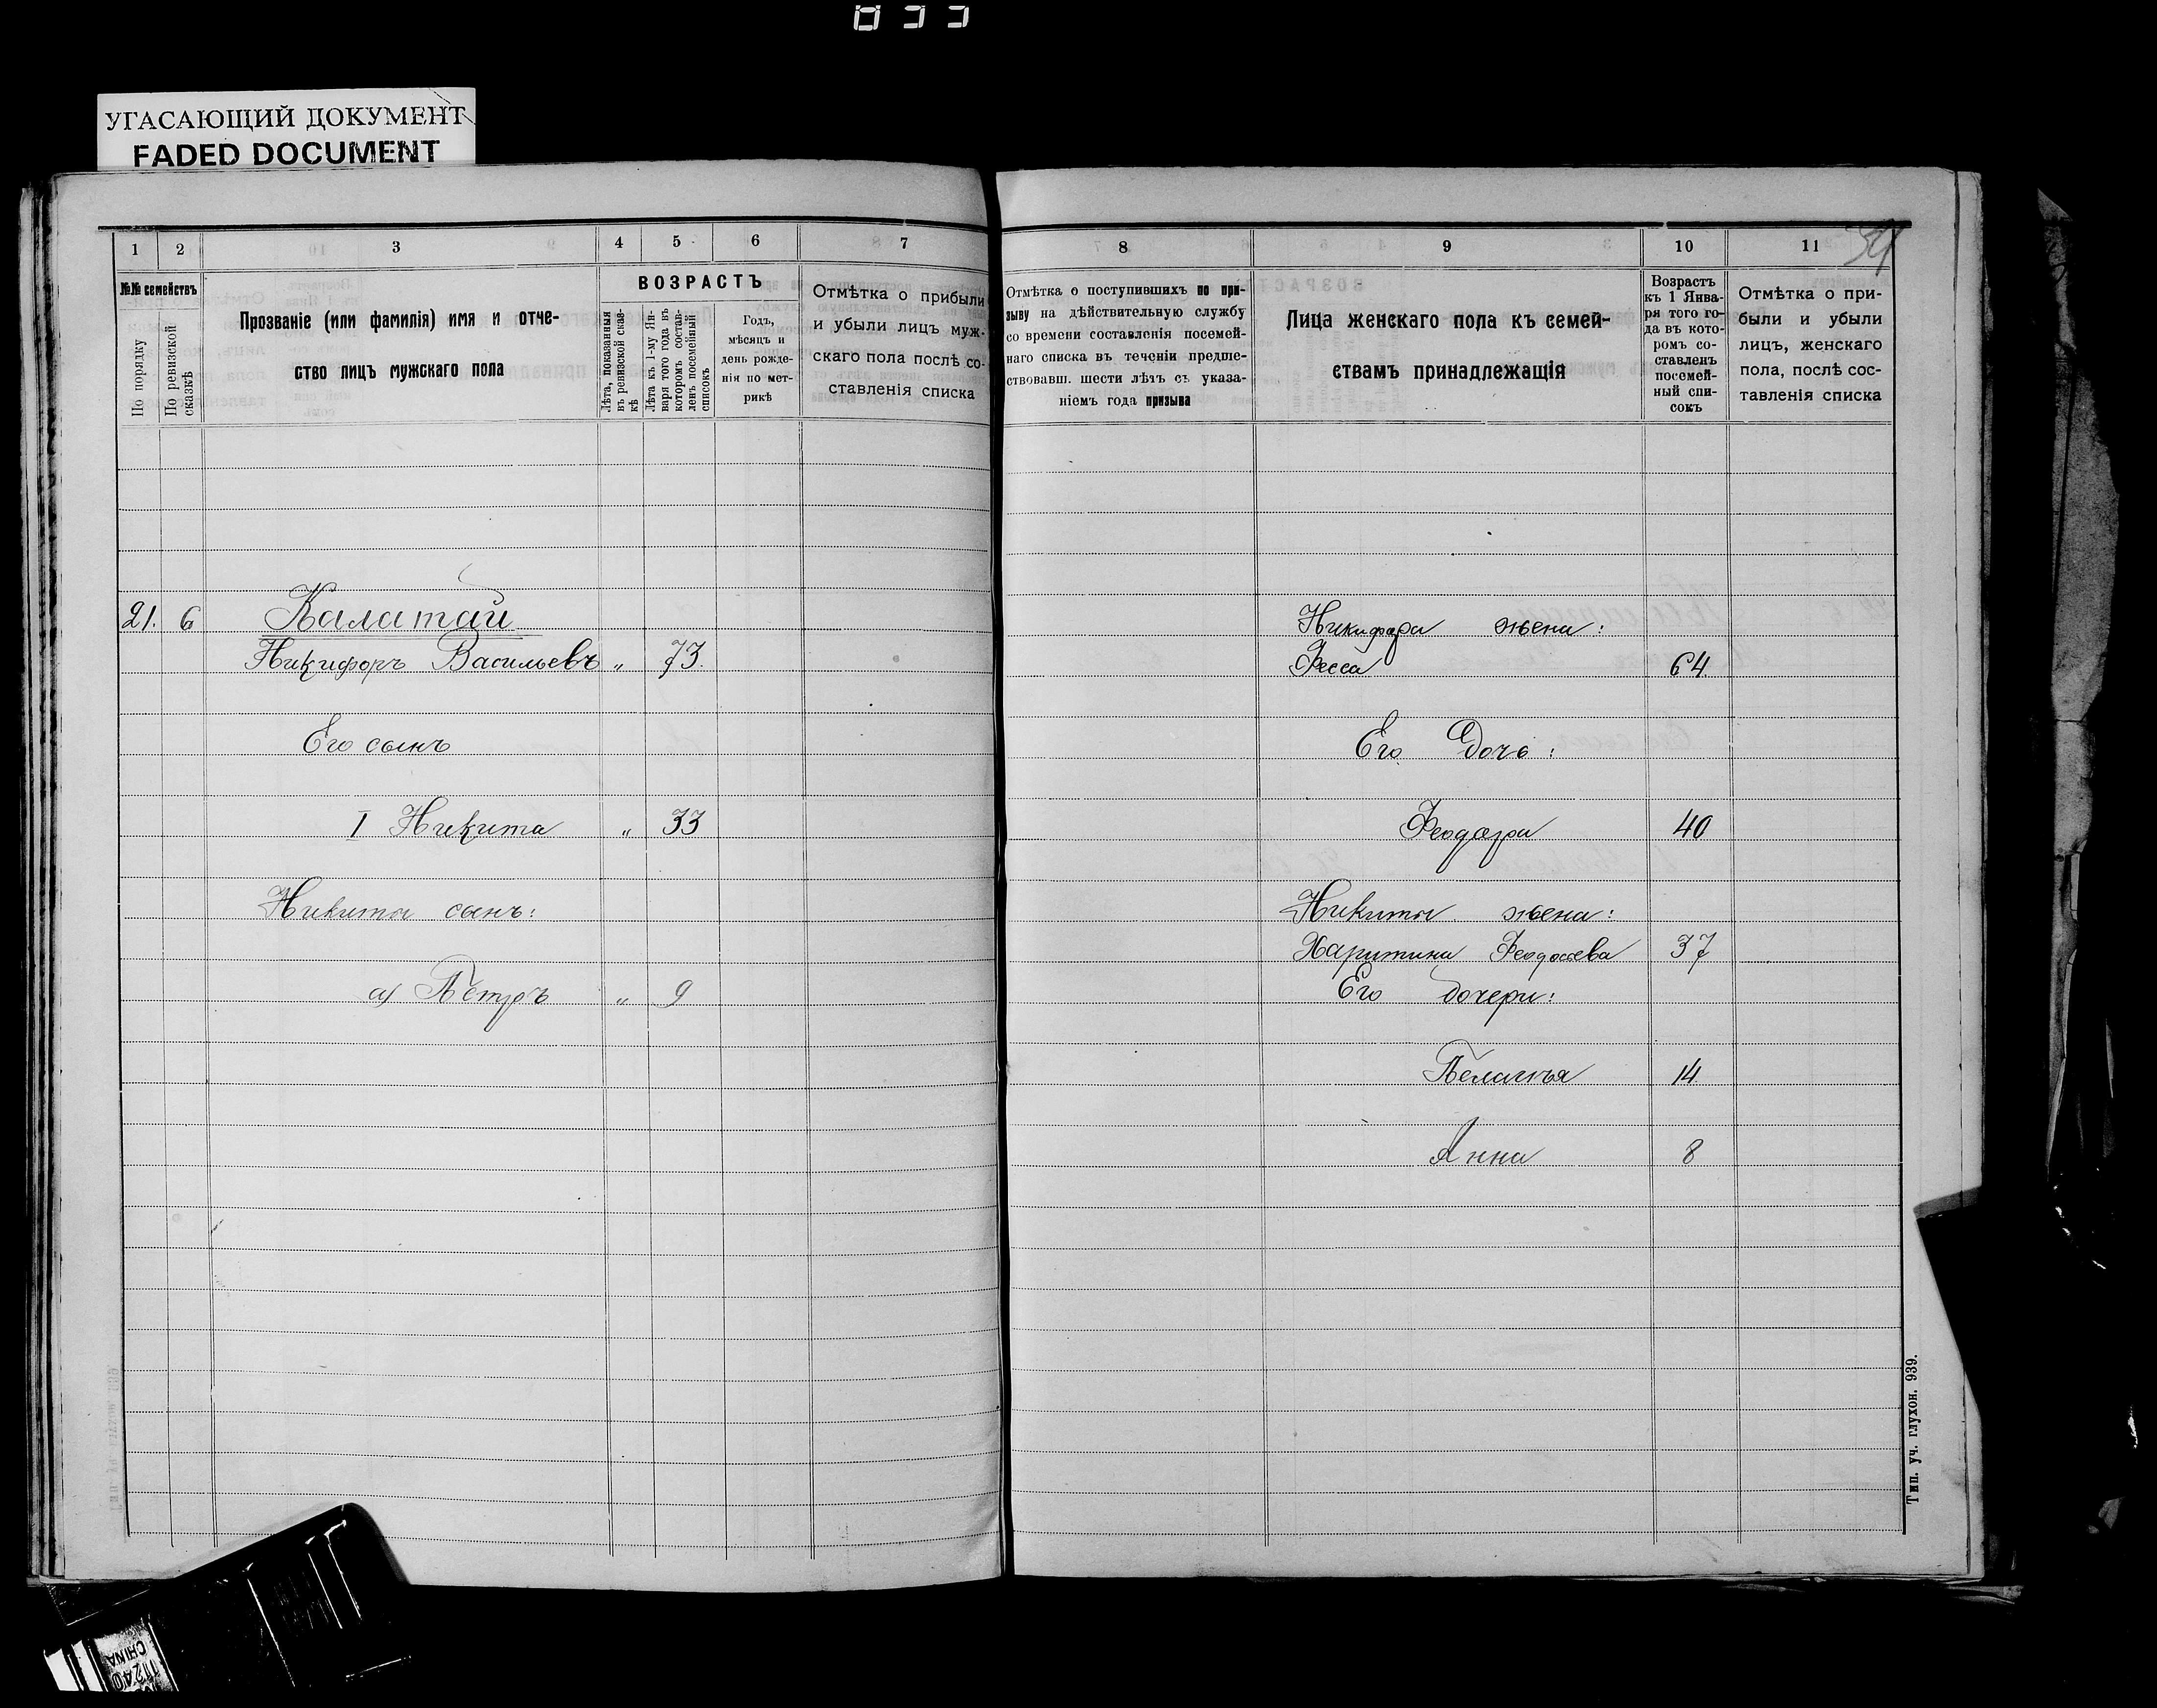 УГАСАЮЩИЙ ДОКУМЕНТ
FADED DOCUMENT
1 2 3 4 5 6 7
№№ семействъ
По порядку
По ревизской сказкѣ
Прозваніе (или фамилія) имя и отче-
ство лицъ мужскаго пола
ВОЗРАСТЪ
Лѣта, показанныя
въ ревизской сказ-
кѣ
Лѣта къ 1-му Ян-
варя того года въ
которомъ состав-
ленъ посемейный
списокъ
Годъ,
мѣсяцъ и
день рожде-
нія по мет-
рикѣ
Отмѣтка о прибыли
и убыли лицъ муж-
скаго пола послѣ со-
ставленія списка
21. 6 Калатай
Никифоръ Васильевъ „ 73.
Его сынъ
I Никита „ 33
Никиты сынъ:
а) Петръ „ 9
8 9 10 11
Отмѣтка о поступившихъ по при-
зыву на дѣйствительную службу
со времени составленія посемей-
наго списка въ теченіи предше-
ствовавш. шести лѣтъ съ указа-
ніемъ года призыва
Лица женскаго пола къ семей-
ствамъ принадлежащія
Возрастъ
къ 1 Янва-
ря того го-
да въ кото-
ромъ со-
ставленъ
посемей-
ный спи-
сокъ
Отмѣтка о при-
были и убыли
лицъ, женскаго
пола, послѣ сос-
тавленія списка
Никифора жена:
Фесса 64.
Его Дочь:
Феодора 40
Никиты жена:
Харитина Феодосеева 37
Его дочери:
Пелагея 14.
Анна 8
Тип. уч. глухон. 939.
CHINA